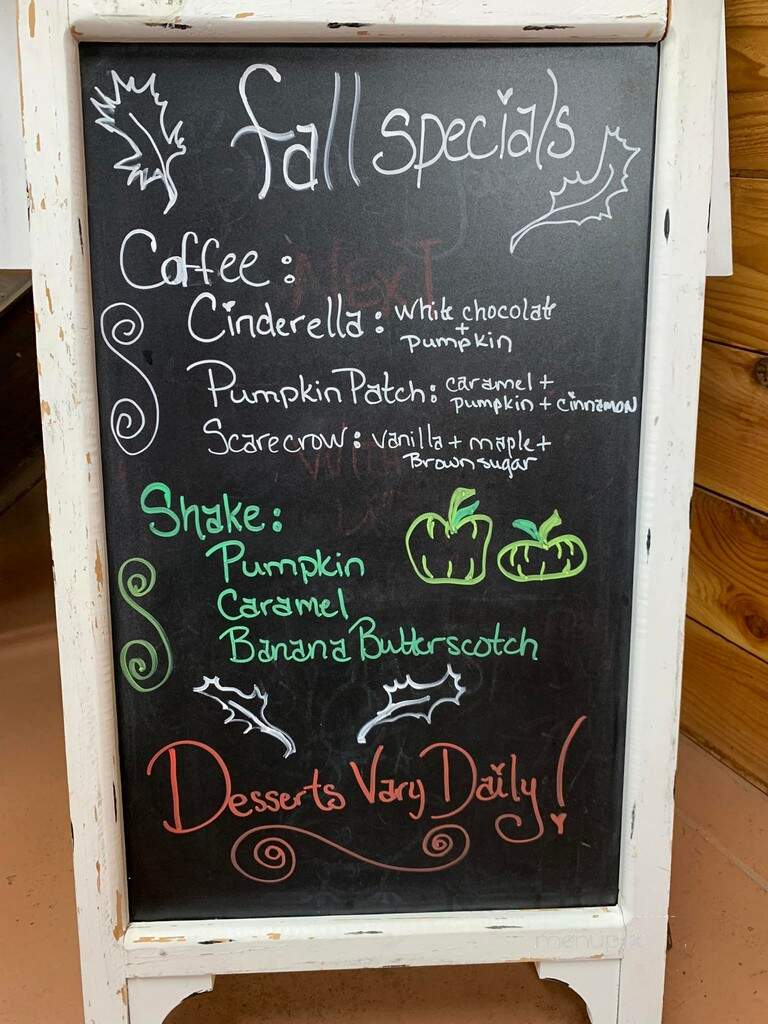 fall specials
Coffee:
Cinderella: white chocolate
+
pumpkin
Pumpkin Patch: caramel +
pumpkin + cinnamon
Scarecrow: vanilla + maple +
Brown sugar
Shake:
Pumpkin
Caramel
Banana Butterscotch
Desserts Vary Daily!
NEXT
WITH
menupix